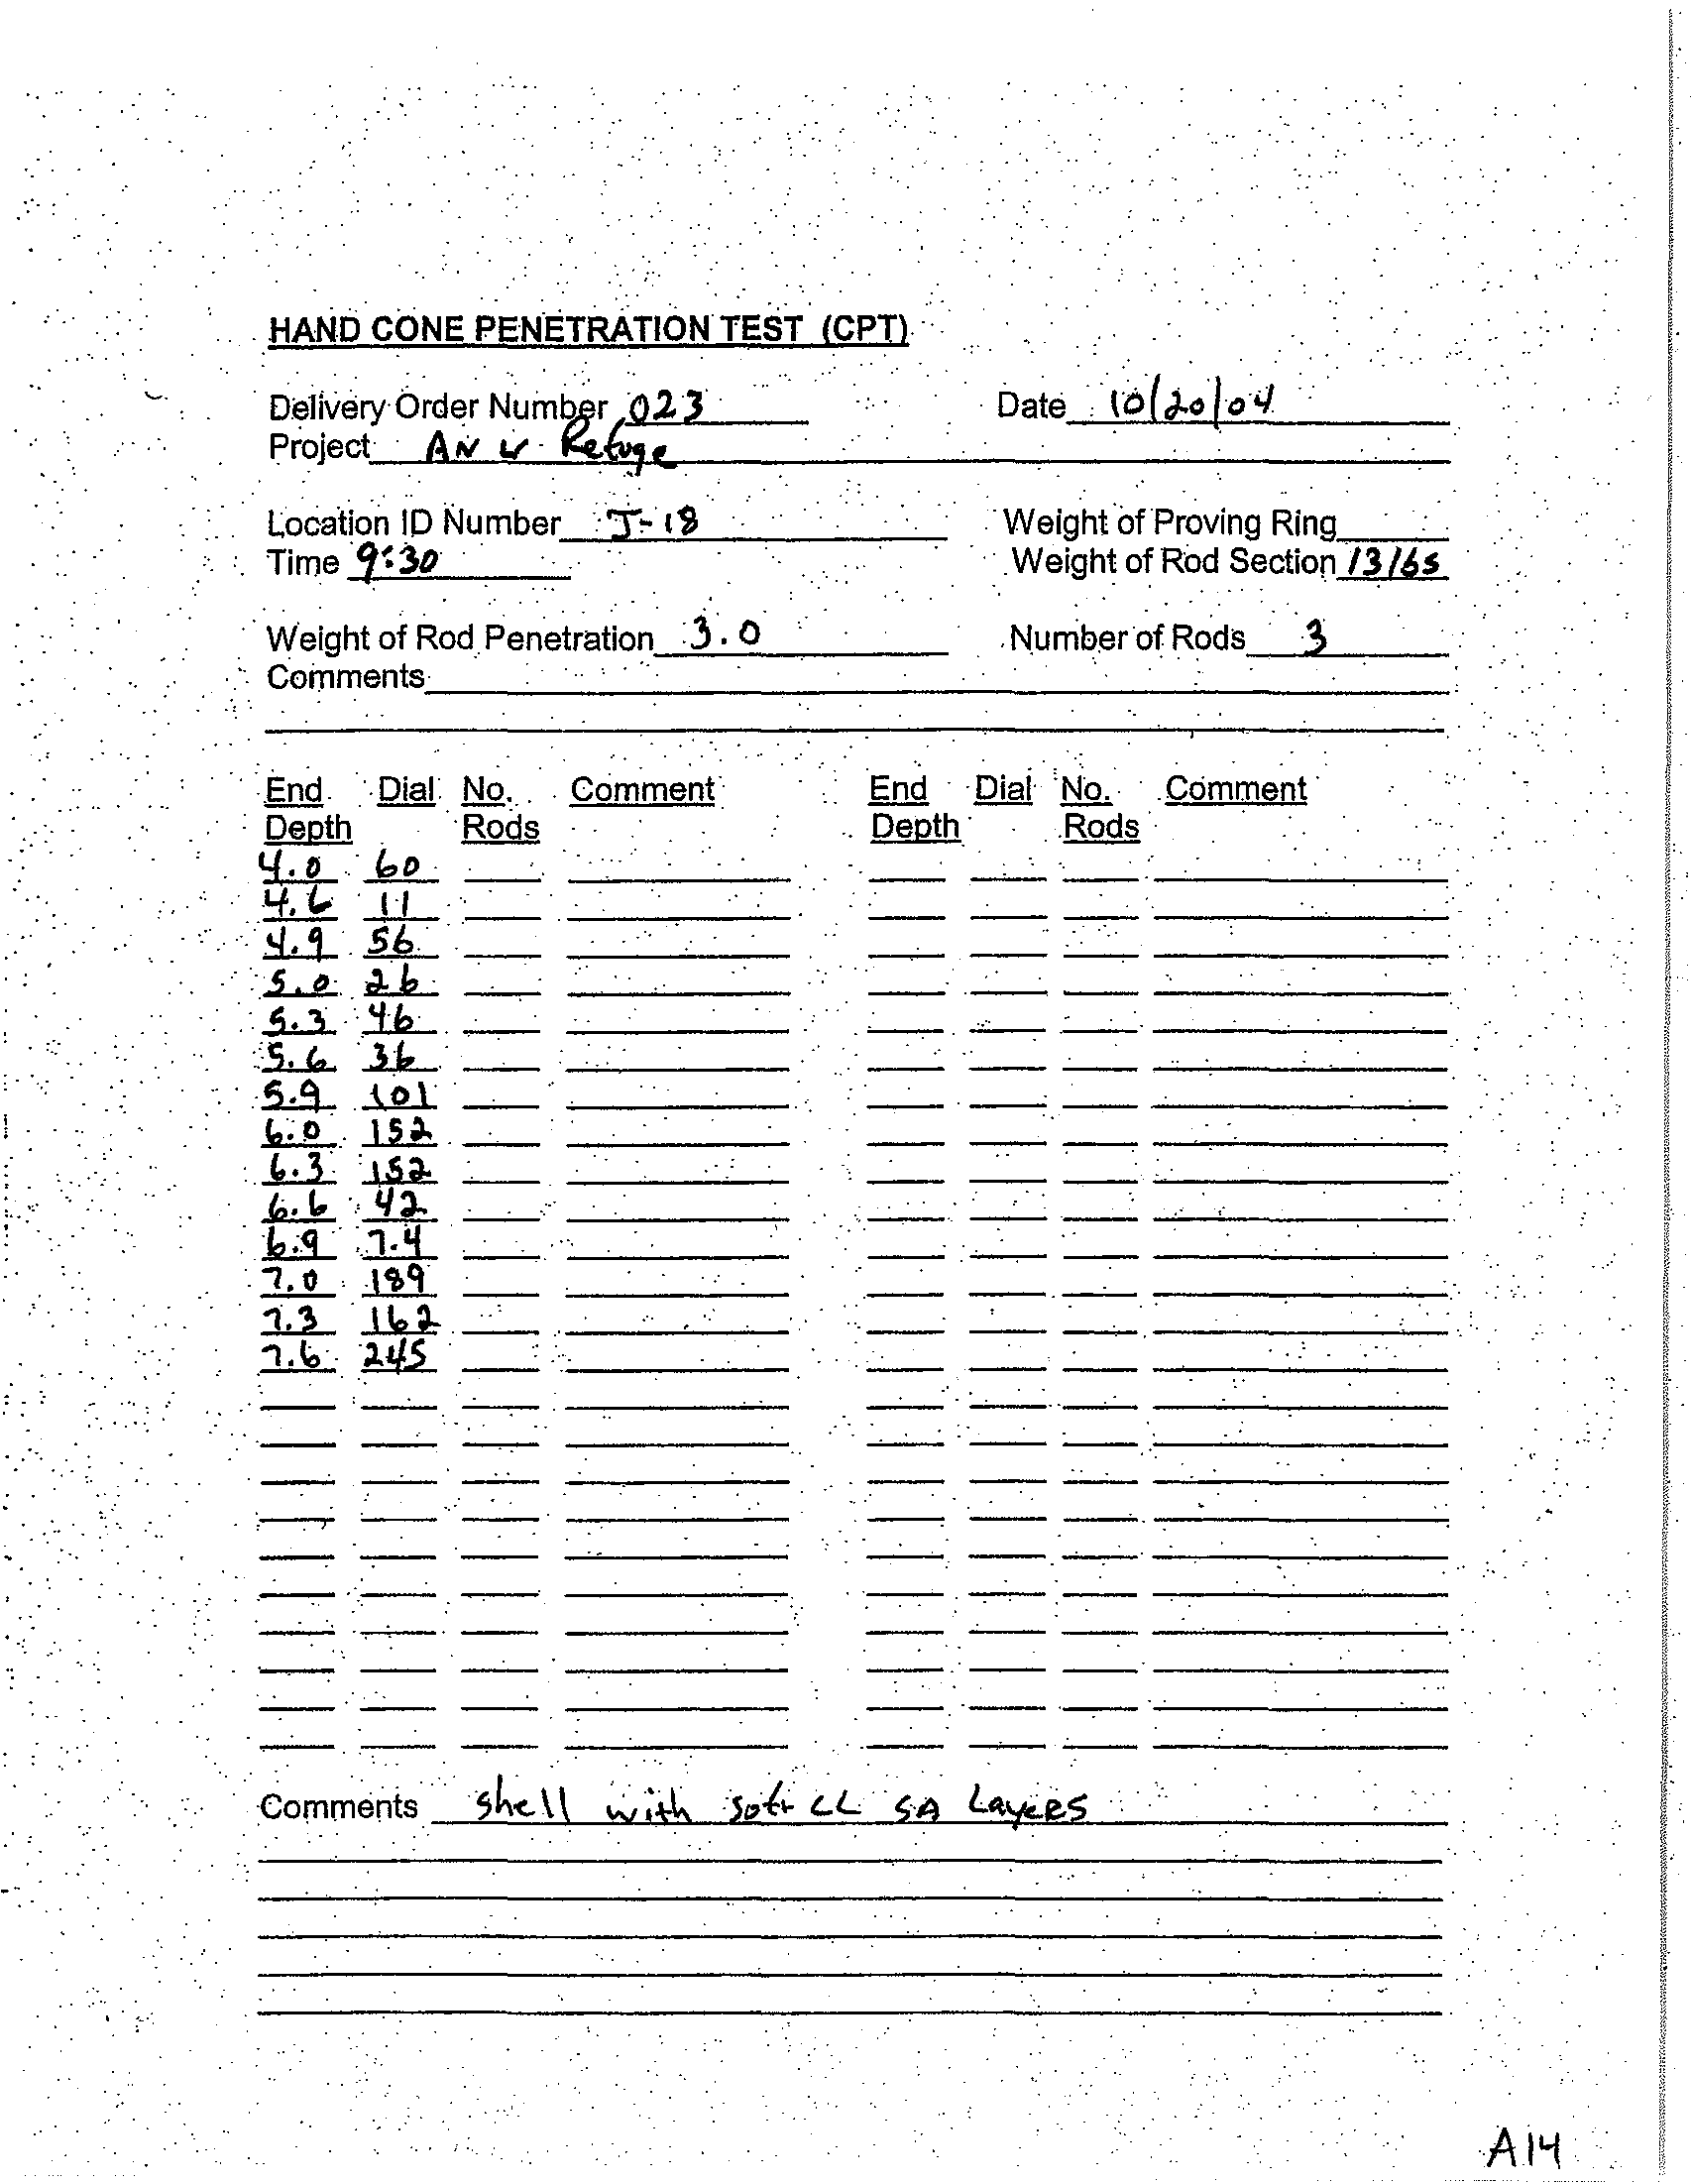 HAND CONE PENETRATION TEST (CPT)
Delivery Order Number 023 Date 10/20/04
Project ANW Refuge
Location ID Number J-18 Weight of Proving Ring
Time 9:30 Weight of Rod Section 13 lbs
Weight of Rod Penetration 3.0 Number of Rods 3
Comments
End Dial No. Comment End Dial No. Comment
Depth Rods Depth Rods
4.0 60
4.6 11
4.9 56
5.0 26
5.3 46
5.6 36
5.9 101
6.0 152
6.3 152
6.6 42
6.9 7.4
7.0 189
7.3 162
7.6 245
Comments shell with soft CL SA Layers
A14